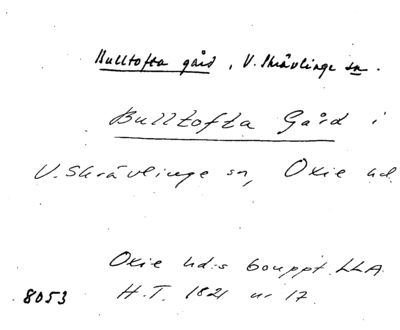 Bulltofta gård, V. Skrävlinge sn.
Bulltofta Gård i
V. Skrävlinge sn, Oxie hd.
Oxie hd:s bouppt. LLA.
8053 H.T. 1821 nr 17.